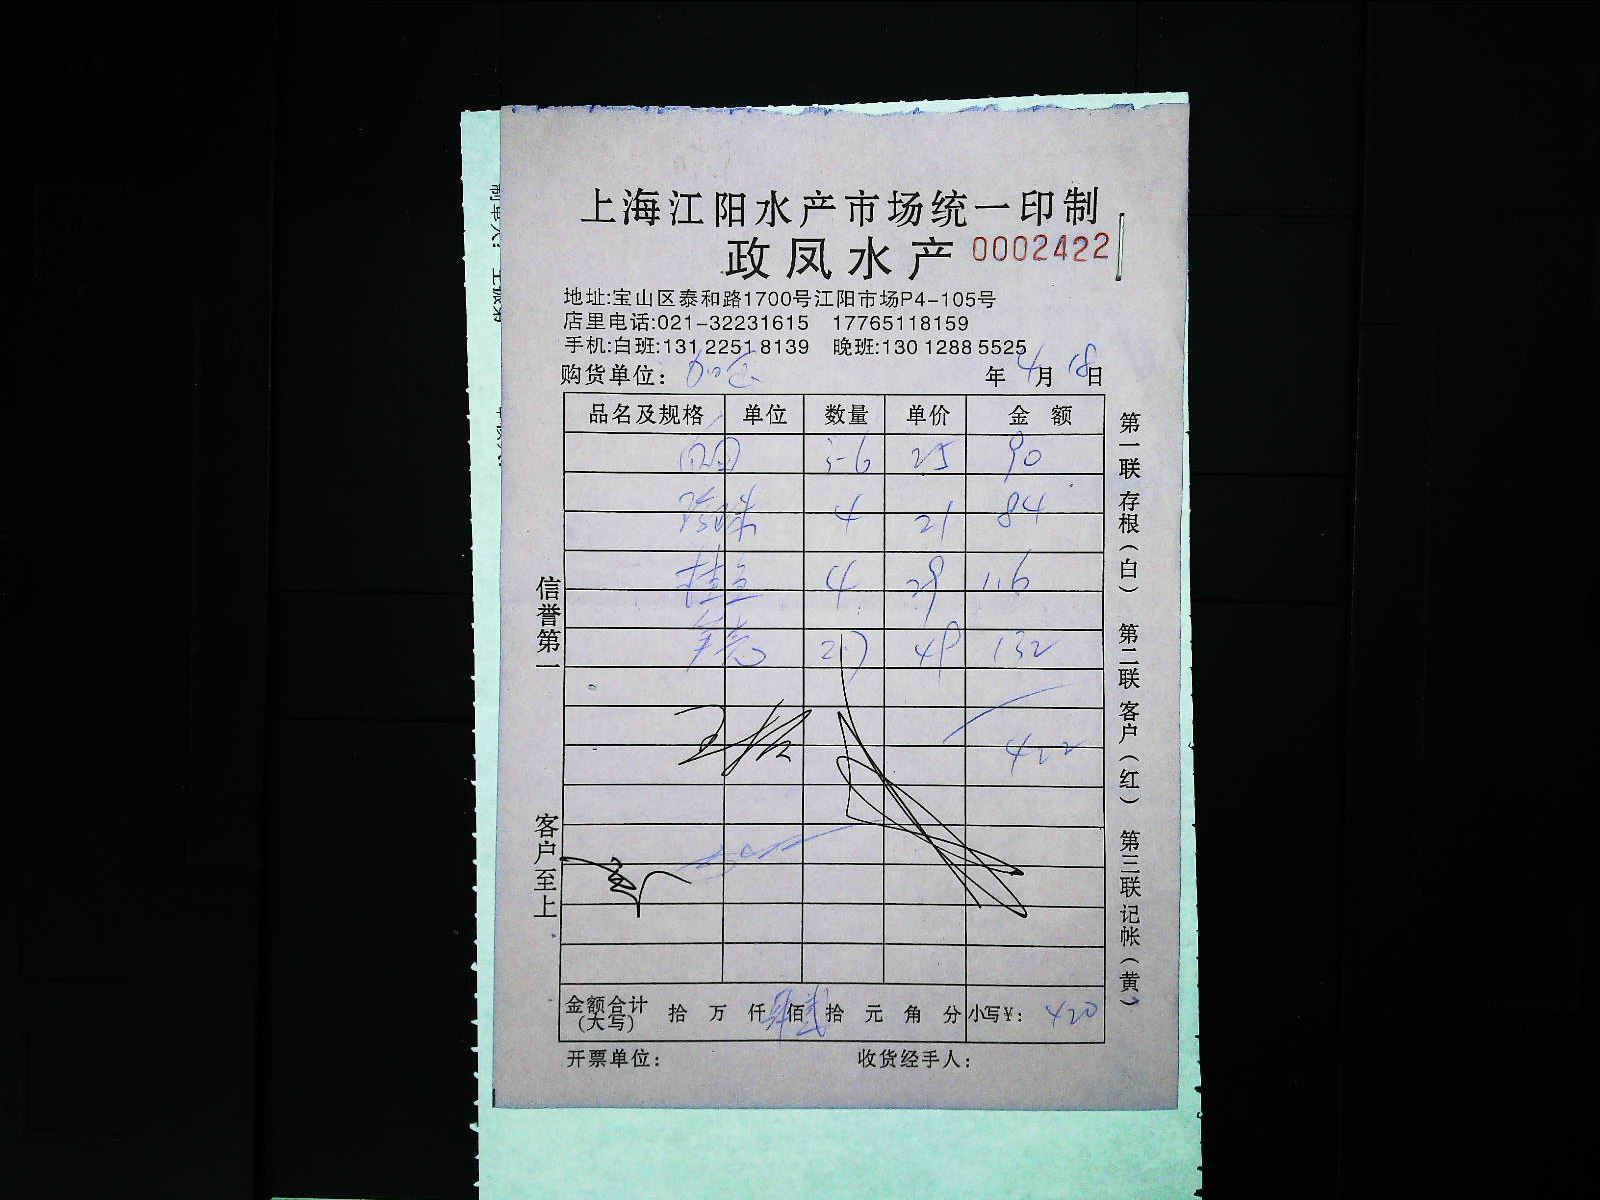 上海江阳水产市场统一印制
政凤水产 0002422
地址:宝山区泰和路1700号江阳市场P4-105号
店里电话:021-32231615 17765118159
手机:白班:131 2251 8139 晚班:130 1288 5525
购货单位: 年 4月 18日
品名及规格 单位 数量 单价 金额
3-6 25 90
珍珠 4 21 84
桂鱼 4 29 116
27 48 132
422
金额合计(大写) 拾 万 仟 肆佰 贰拾 元 角 分 小写¥: 420
开票单位: 收货经手人:
信誉第一
客户至上
第一联 存根(白) 第二联 客户(红) 第三联 记帐(黄)